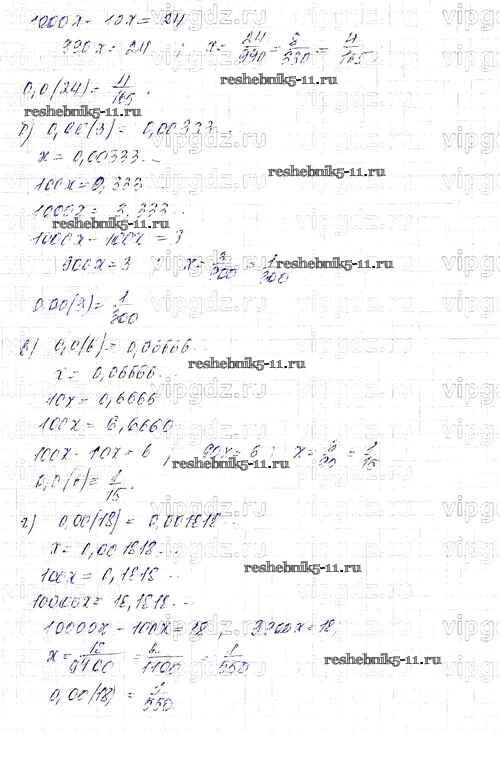 1000x - 10x = 24
990x = 24 ; x = 24/990 = 8/330 = 4/165.
0,0(24) = 4/165.
б) 0,00(3) = 0,00333...
x = 0,00333...
100x = 0,333...
1000x = 3,333...
1000x - 100x = 3
900x = 3 ; x = 3/900 = 1/300
0,00(3) = 1/300
в) 0,0(6) = 0,06666...
x = 0,06666...
10x = 0,6666
100x = 6,6660
100x - 10x = 6, 90x = 6 ; x = 6/90 = 1/15
0,0(6) = 1/15.
г) 0,00(18) = 0,001818...
x = 0,001818...
100x = 0,1818...
10000x = 18,1818...
10000x - 100x = 18, 9900x = 18;
x = 18/9900 = 2/1100 = 1/550
0,00(18) = 1/550
reshebnik5-11.ru
reshebnik5-11.ru
reshebnik5-11.ru
reshebnik5-11.ru
reshebnik5-11.ru
reshebnik5-11.ru
reshebnik5-11.ru
reshebnik5-11.ru
vipgdz.ru